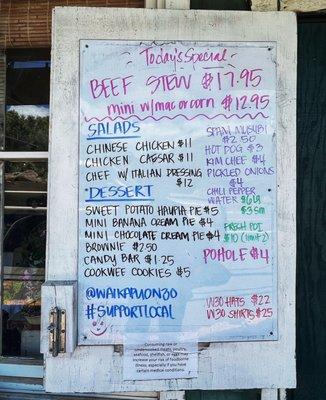 Today's Special
BEEF STEW $17.95
mini w/mac or corn $12.95
SALADS
CHINESE CHICKEN $11
CHICKEN CAESAR $11
CHEF W/ ITALIAN DRESSING
$12
DESSERT
SWEET POTATO HAUPIA PIE $5
MINI BANANA CREAM PIE $4
MINI CHOCOLATE CREAM PIE $4
BROWNIE $2.50
CANDY BAR $1.25
COOKWEE COOKIES $5
@WAIKAPUON30
#SUPPORTLOCAL
SPAM MUSUBI
$2.50
HOT DOG $3
KIM CHEE $4
PICKLED ONIONS
$4
CHILI PEPPER
WATER $6 lg
$3 sm
FRESH POI
$10 (limit 2)
POHOLE $4
W30 HATS $22
W30 SHIRTS $25
Consuming raw or
undercooked meats, poultry,
seafood, shellfish, or eggs may
increase your risk of foodborne
illness, especially if you have
certain medical conditions.